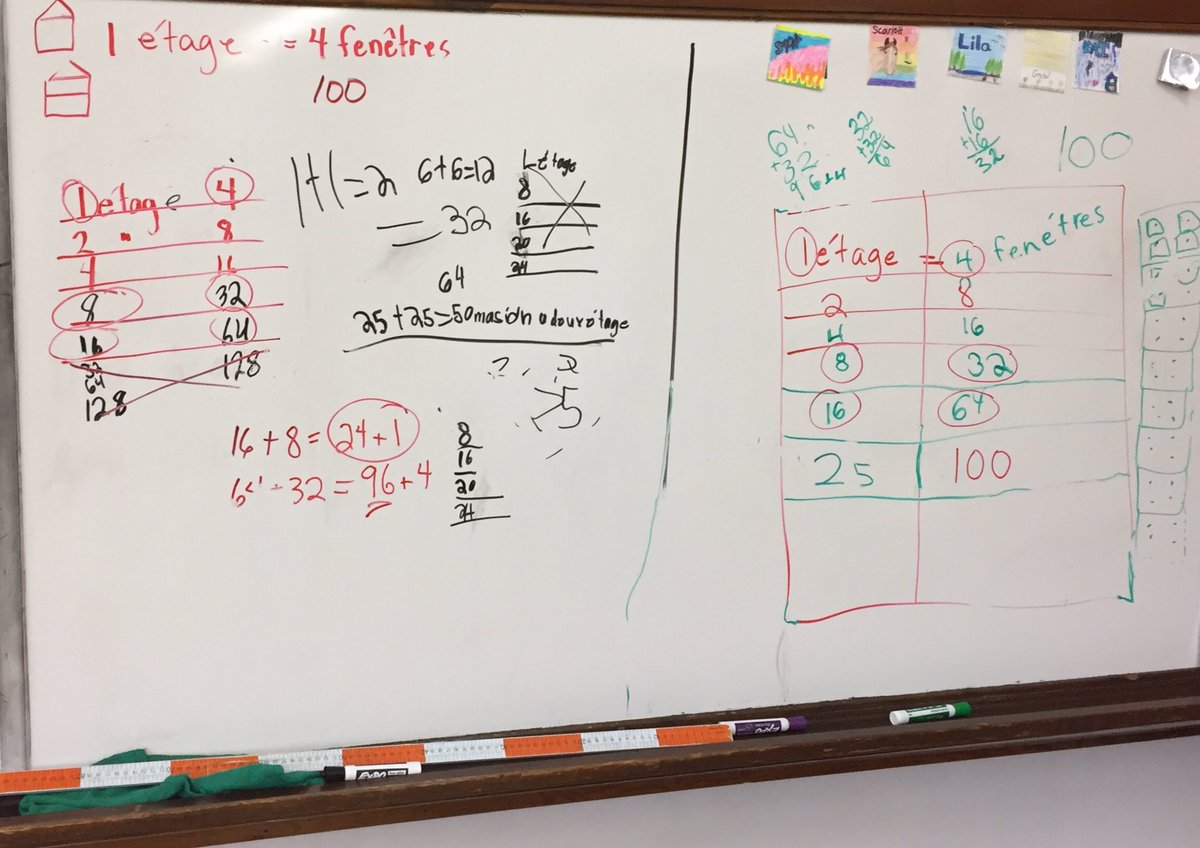 1 étage = 4 fenêtres
100
1 étage 4
2 " 8
4 16
8 32
16 64
32
64
128 128
1+1=2 6+6=12
= 32
64
25+25=50 masion
1 étage
8
16
20
24
16 + 8 = 24 + 1
64 + 32 = 96 + 4
8
16
20
24
? , 2
5
Scarlett
Lila
64
+32
96+4
32
+32
64
16
+16
32
100
1 étage = 4 fenétres
2 8
4 16
8 32
16 64
25 100
EXPO
EXPO